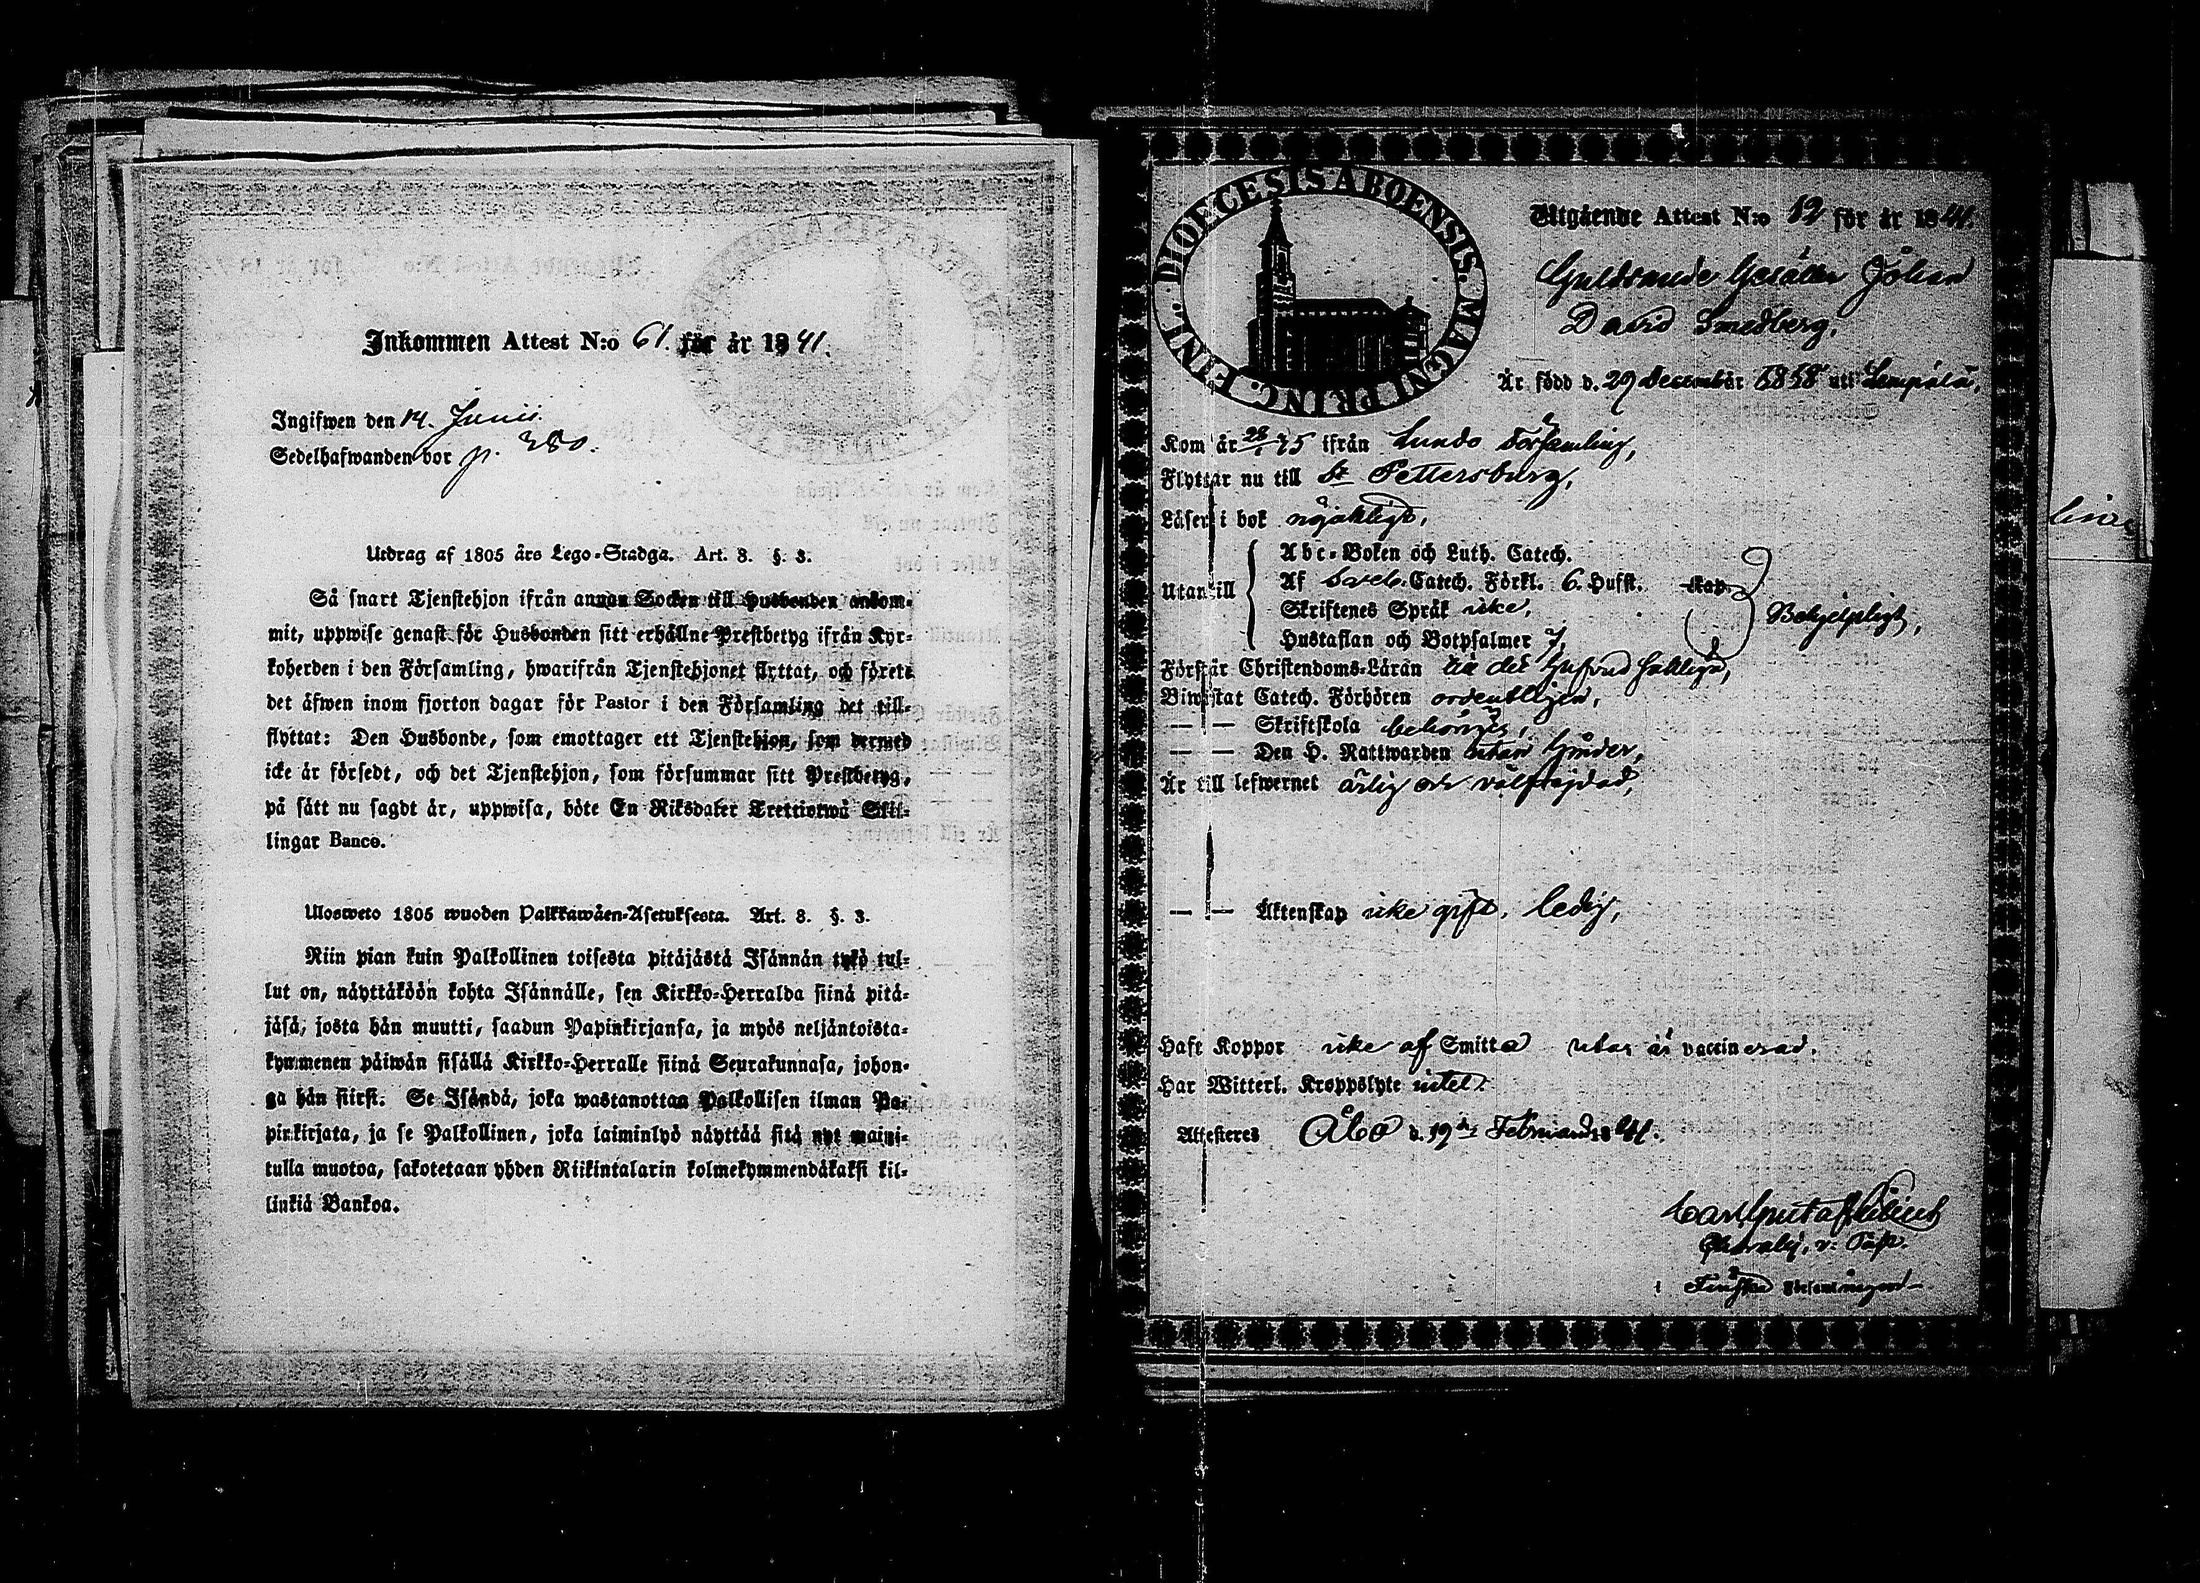 Inkommen Attest N:o 61. för år 1841.
Ingifwen den 14. Junii
Sedelhafwanden bor p. 280.
Utdrag af 1805 års Lego-Stadga. Art. 3. §. 3.
Så snart Tjenstehjon ifrån annan Socken till Husbonden ankom-
mit, uppwise genast för Husbonden sitt erhållne Prestbetyg ifrån Kyr-
koherden i den Församling, hwarifrån Tjenstehjonet flyttat, och förete
det äfwen inom fjorton dagar för Pastor i den Församling det till-
flyttat: Den Husbonde, som emottager ett Tjenstehjon, som dermed
icke är försedt, och det Tjenstehjon, som försummar sitt Prestbetyg,
på sätt nu sagdt är, uppwisa, böte En Riksdaler Trettiotwå Skil-
lingar Banco.
Ulosweto 1805 wuoden Palkkawäen-Asetuksesta. Art. 3. §. 3.
Niin pian kuin Palkollinen toisesta pitäjästä Isännän tykö tul-
lut on, näyttäköön kohta Isännälle, sen Kirkko-Herralda siinä pitä-
jäsä, josta hän muutti, saadun Papinkirjansa, ja myös neljäntoista-
kymmenen päiwän sisällä Kirkko-Herralle siinä Seurakunnasa, johon-
ga hän siirst. Se Isändä, joka wastanottaa Palkollisen ilman Pa-
pinkirjata, ja se Palkollinen, joka laiminlyö näyttää sitä nyt maini-
tulla muotoa, sakotetaan yhden Riikintalarin kolmekymmendäkaksi kil-
linkiä Bankoa.
DIOECESIS ABOENSIS. MAGNI PRINC. FINL.
Utgående Attest N:o 12 för år 1841.
Guldsmeds Gesällen Johan
David Smedberg,
Är född d. 29 December 1818 uti Lempälä,
Kom år 28/1 35 ifrån Lundo Församling,
Flyttar nu till St Pettersburg,
Läser i bok nöjaktligt,
Utantill
Abc-Boken och Luth. Catech.
Af Sveb. Catech. Förkl. 6. Hufst. skap.
Skriftenes Språk icke,
Hustaflan och Botpsalmer 7
Behjelpligt,
Förstår Christendoms-Läran till det hufvudsakliga,
Biwistat Catech. Förhören ordentligen,
— — Skriftskola behörigt,
— — Den H. Nattwarden utan hinder,
Är till lefwernet ärlig och välfrejdad,
— — Äktenskap icke gift, ledig,
Haft Koppor icke af Smitta utan är vaccinerad.
Har Witterl. Kroppslyte intet.
Attesteres Åbo d. 19de Februari 1841.
Carl Gustaf
v: Past.
i Finska Församlingen